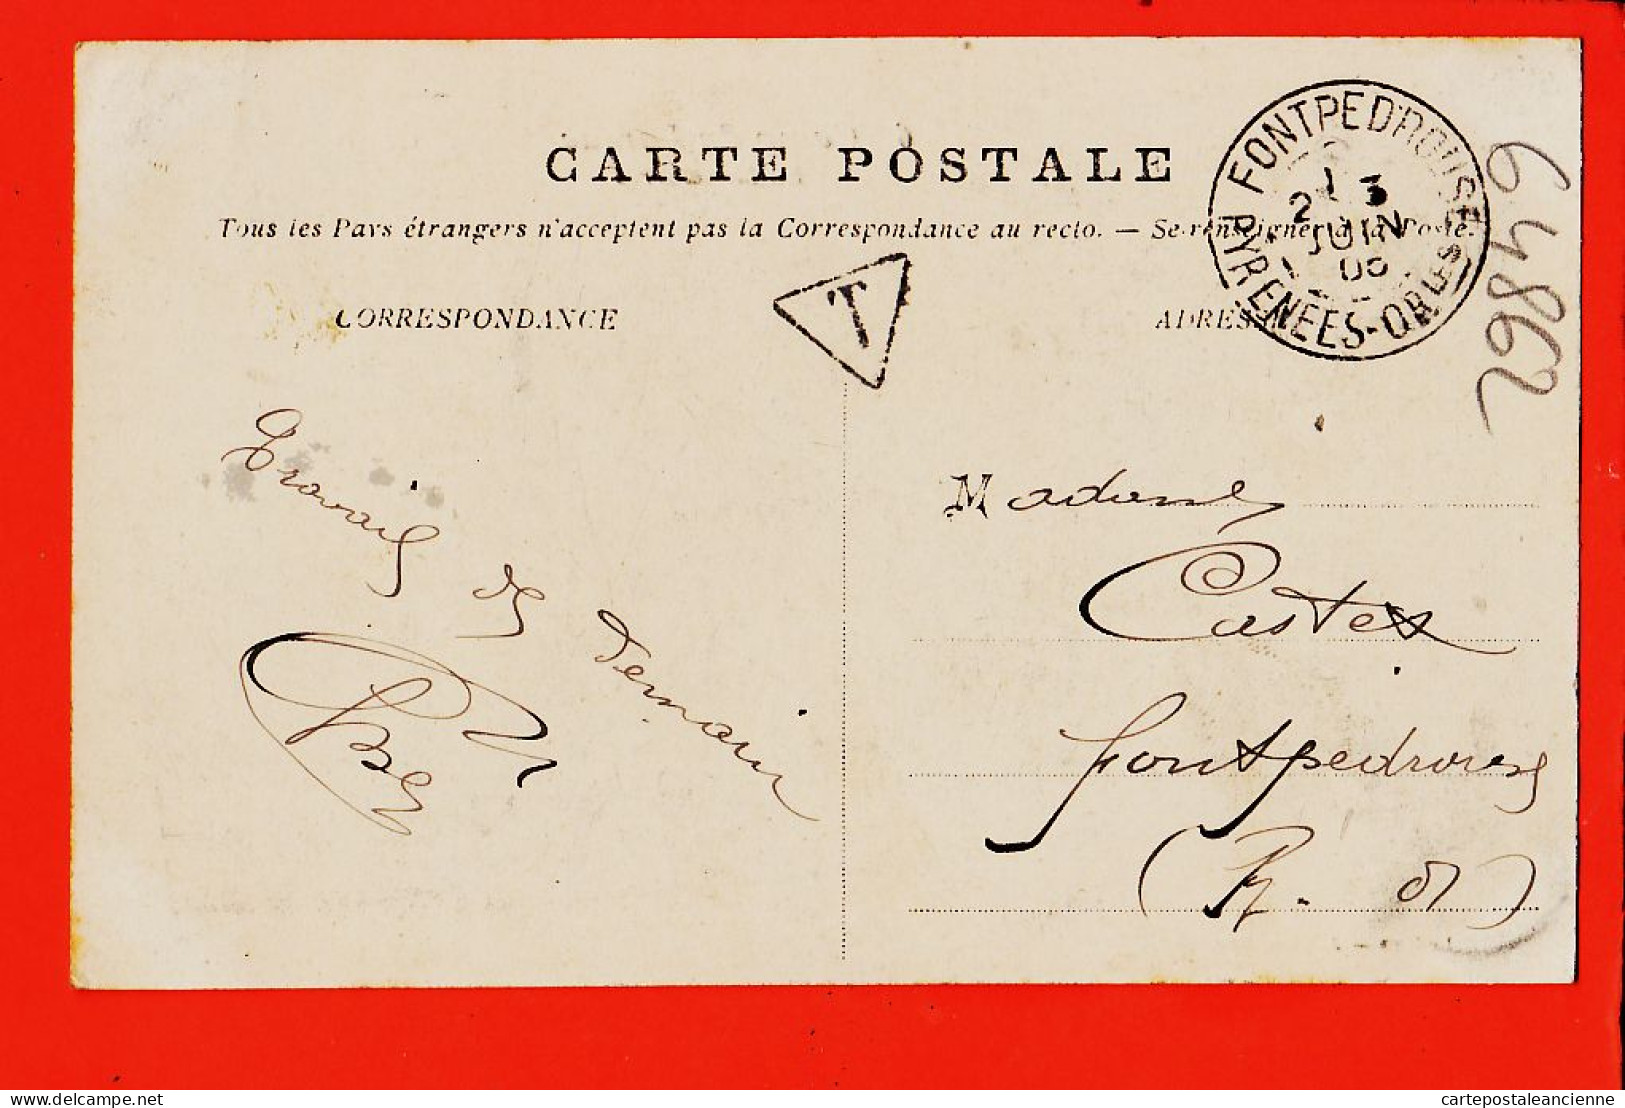 CARTE POSTALE
Tous les Pays étrangers n'acceptent pas la Correspondance au recto. — Se renseigner à la Poste.
FONTPEDROUSE
2 JUIN
PYRENÉES-ORLES
T
CORRESPONDANCE
ADRESSE
64862
Travail de demain
Madame
Castex
Fontpedrouse
(P. O)
delcampe.net
cartepostaleancienne